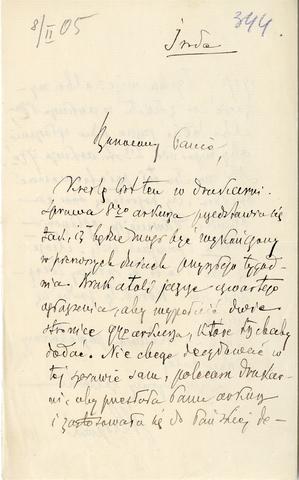 8/II 05
344
Środa
Szanowny Panie,
Kreślę list ten w drukarni.
Sprawa 8go arkusza przedstawia się
tak, iż będzie mógł być wykończony
w pierwszych dniach przyszłego tygod-
nia. Brak atoli jeszcze czwartego
ogłoszenia, aby wypełnić dwie
stronice arkusza, które trzeba by
dodać. Nie chcąc decydować w
tej sprawie sam, polecam drukar-
ni aby przesłała Panu arkusz
i zastosowała się do Pańskiej de-